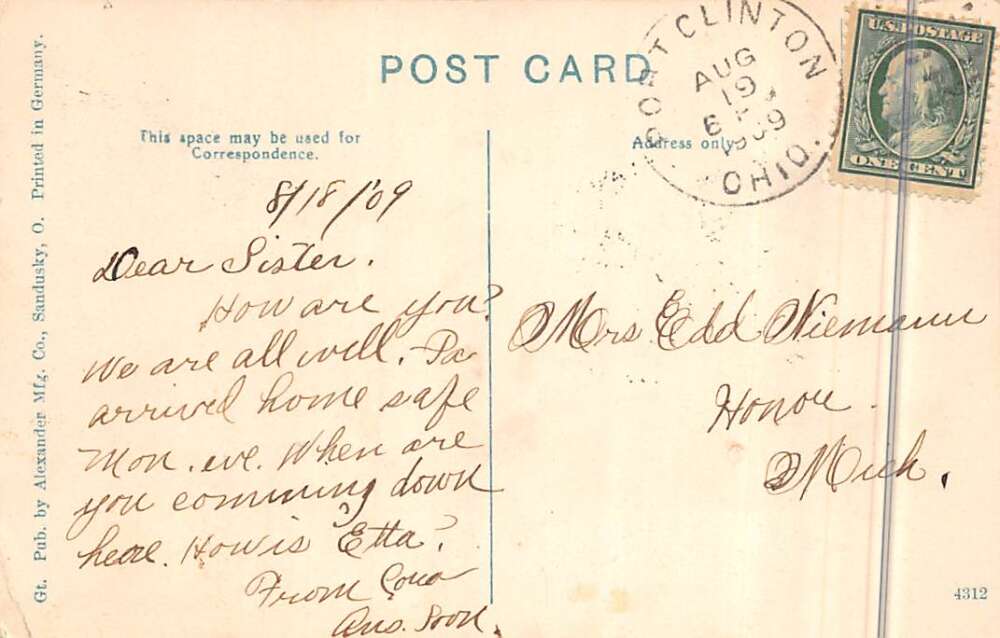 POST CARD
This space may be used for
Correspondence.
Address only.
PORT CLINTON
AUG
19
6 P
1909
OHIO.
U.S. POSTAGE
ONE CENT
8/18/09
Dear Sister.
How are you?
We are all well. Pa
arrived home safe
Mon. eve. When are
you comming down
here. How is Etta?
From Cora
Ans. Soon.
Mrs Edd Niemann
Honor.
Mich.
4312
Gt. Pub. by Alexander Mfg. Co., Sandusky, O. Printed in Germany.